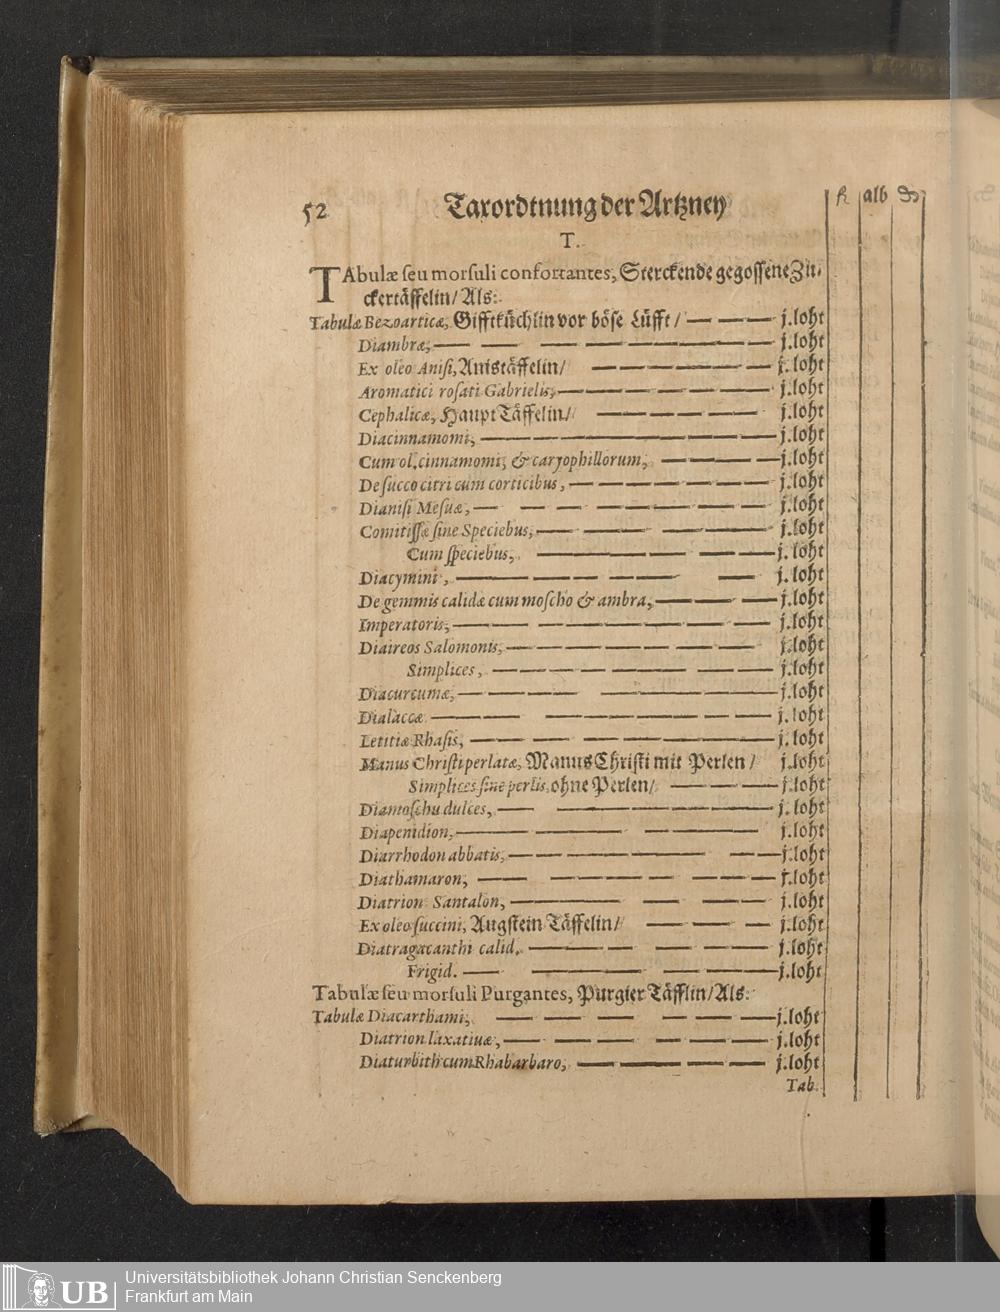 52 Taxordtnung der Artzney fl. alb ₰
T.
TAbulæ seu morsuli confortantes, Sterckende gegossene Zu-
ckertäffelin/ Als:
Tabulæ Bezoarticæ, Gifftküchlin vor böse Lüfft / — — — j. loht
Diambræ, — — — — — — j. loht
Ex oleo Anisi, Anistäffelin/ — — — — j. loht
Aromatici rosati Gabrielis, — — — — j. loht
Cephalicæ, Haupt Täffelin/ — — — — j. loht
Diacinnamomi, — — — — — j. loht
Cum ol. cinnamomi, & caryophillorum, — — — j. loht
De succo citri cum corticibus, — — — — — j. loht
Dianisi Mesuæ, — — — — — — — j. loht
Comitissæ sine Speciebus, — — — — j. loht
Cum speciebus, — — — j. loht
Diacymini, — — — — — j. loht
De gemmis calidæ cum moscho & ambra, — — — j. loht
Imperatoris, — — — — — — j. loht
Diaireos Salomonis, — — — — — j. loht
Simplices, — — — — — j. loht
Diacurcumæ, — — — — — j. loht
Dialaccæ — — — — — j. loht
Letitiæ Rhasis, — — — — — j. loht
Manus Christi perlatæ, Manus Christi mit Perlen / j. loht
Simplices sine perlis, ohne Perlen/ — — — j. loht
Diamoschu dulces, — — — — j. loht
Diapenidion, — — — j. loht
Diarrhodon abbatis, — — — — — j. loht
Diathamaron, — — — — — j. loht
Diatrion Santalon, — — — — — j. loht
Ex oleo succini, Augstein Täffelin/ — — — j. loht
Diatragacanthi calid. — — — — j. loht
Frigid. — — — — j. loht
Tabulæ seu morsuli Purgantes, Purgier Täfflin/ Als:
Tabulæ Diacarthami, — — — — — j. loht
Diatrion laxatiuæ, — — — — — j. loht
Diaturbith cum Rhabarbaro, — — — — j. loht
Tab.
UB
Universitätsbibliothek Johann Christian Senckenberg
Frankfurt am Main